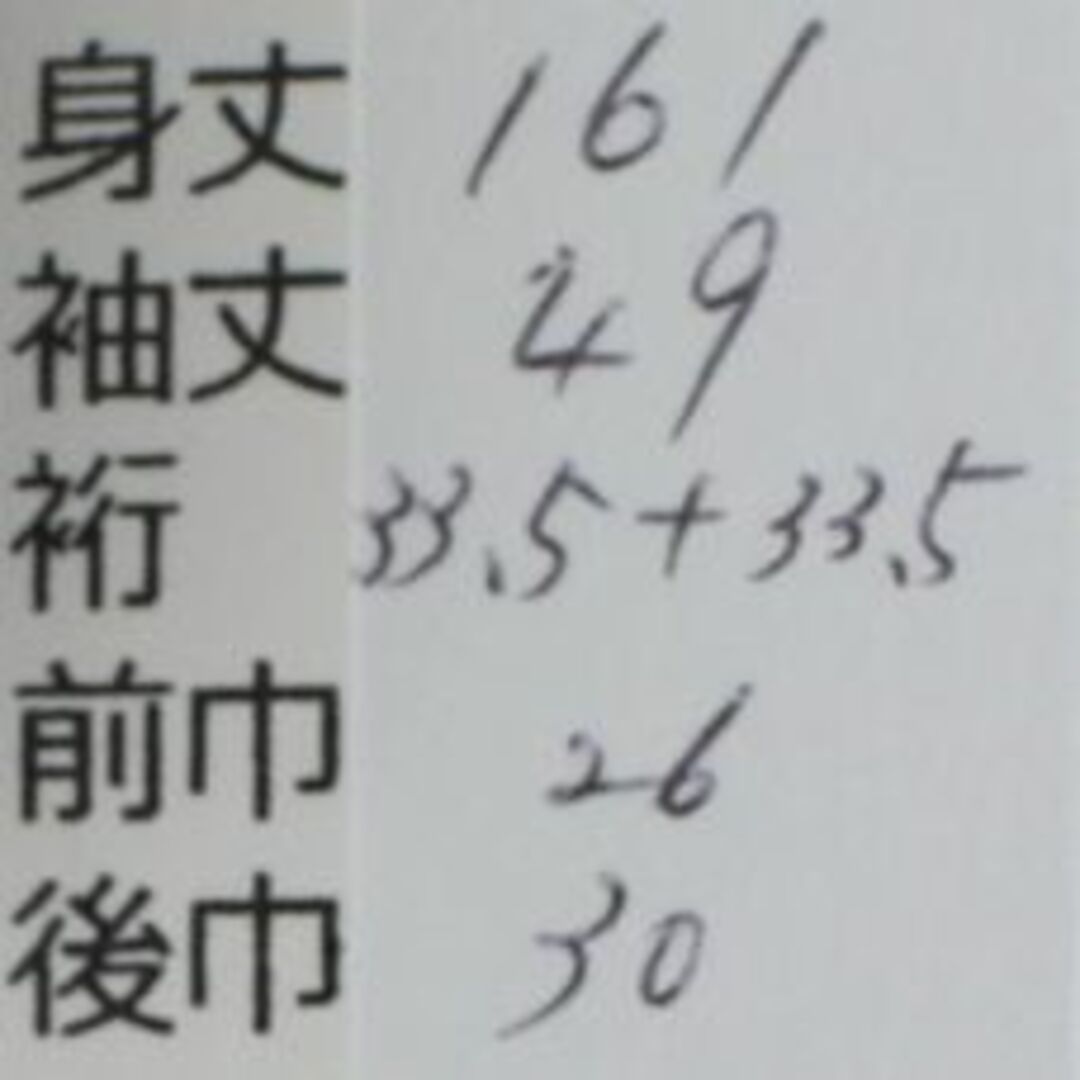 身丈 161
袖丈 49
裄 33.5+33.5
前巾 26
後巾 30